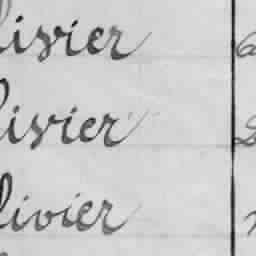 livier
livier
livier